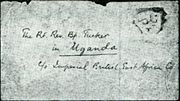 The Rt. Rev. Bp. Tucker
in Uganda
c/o Imperial British East Africa Co